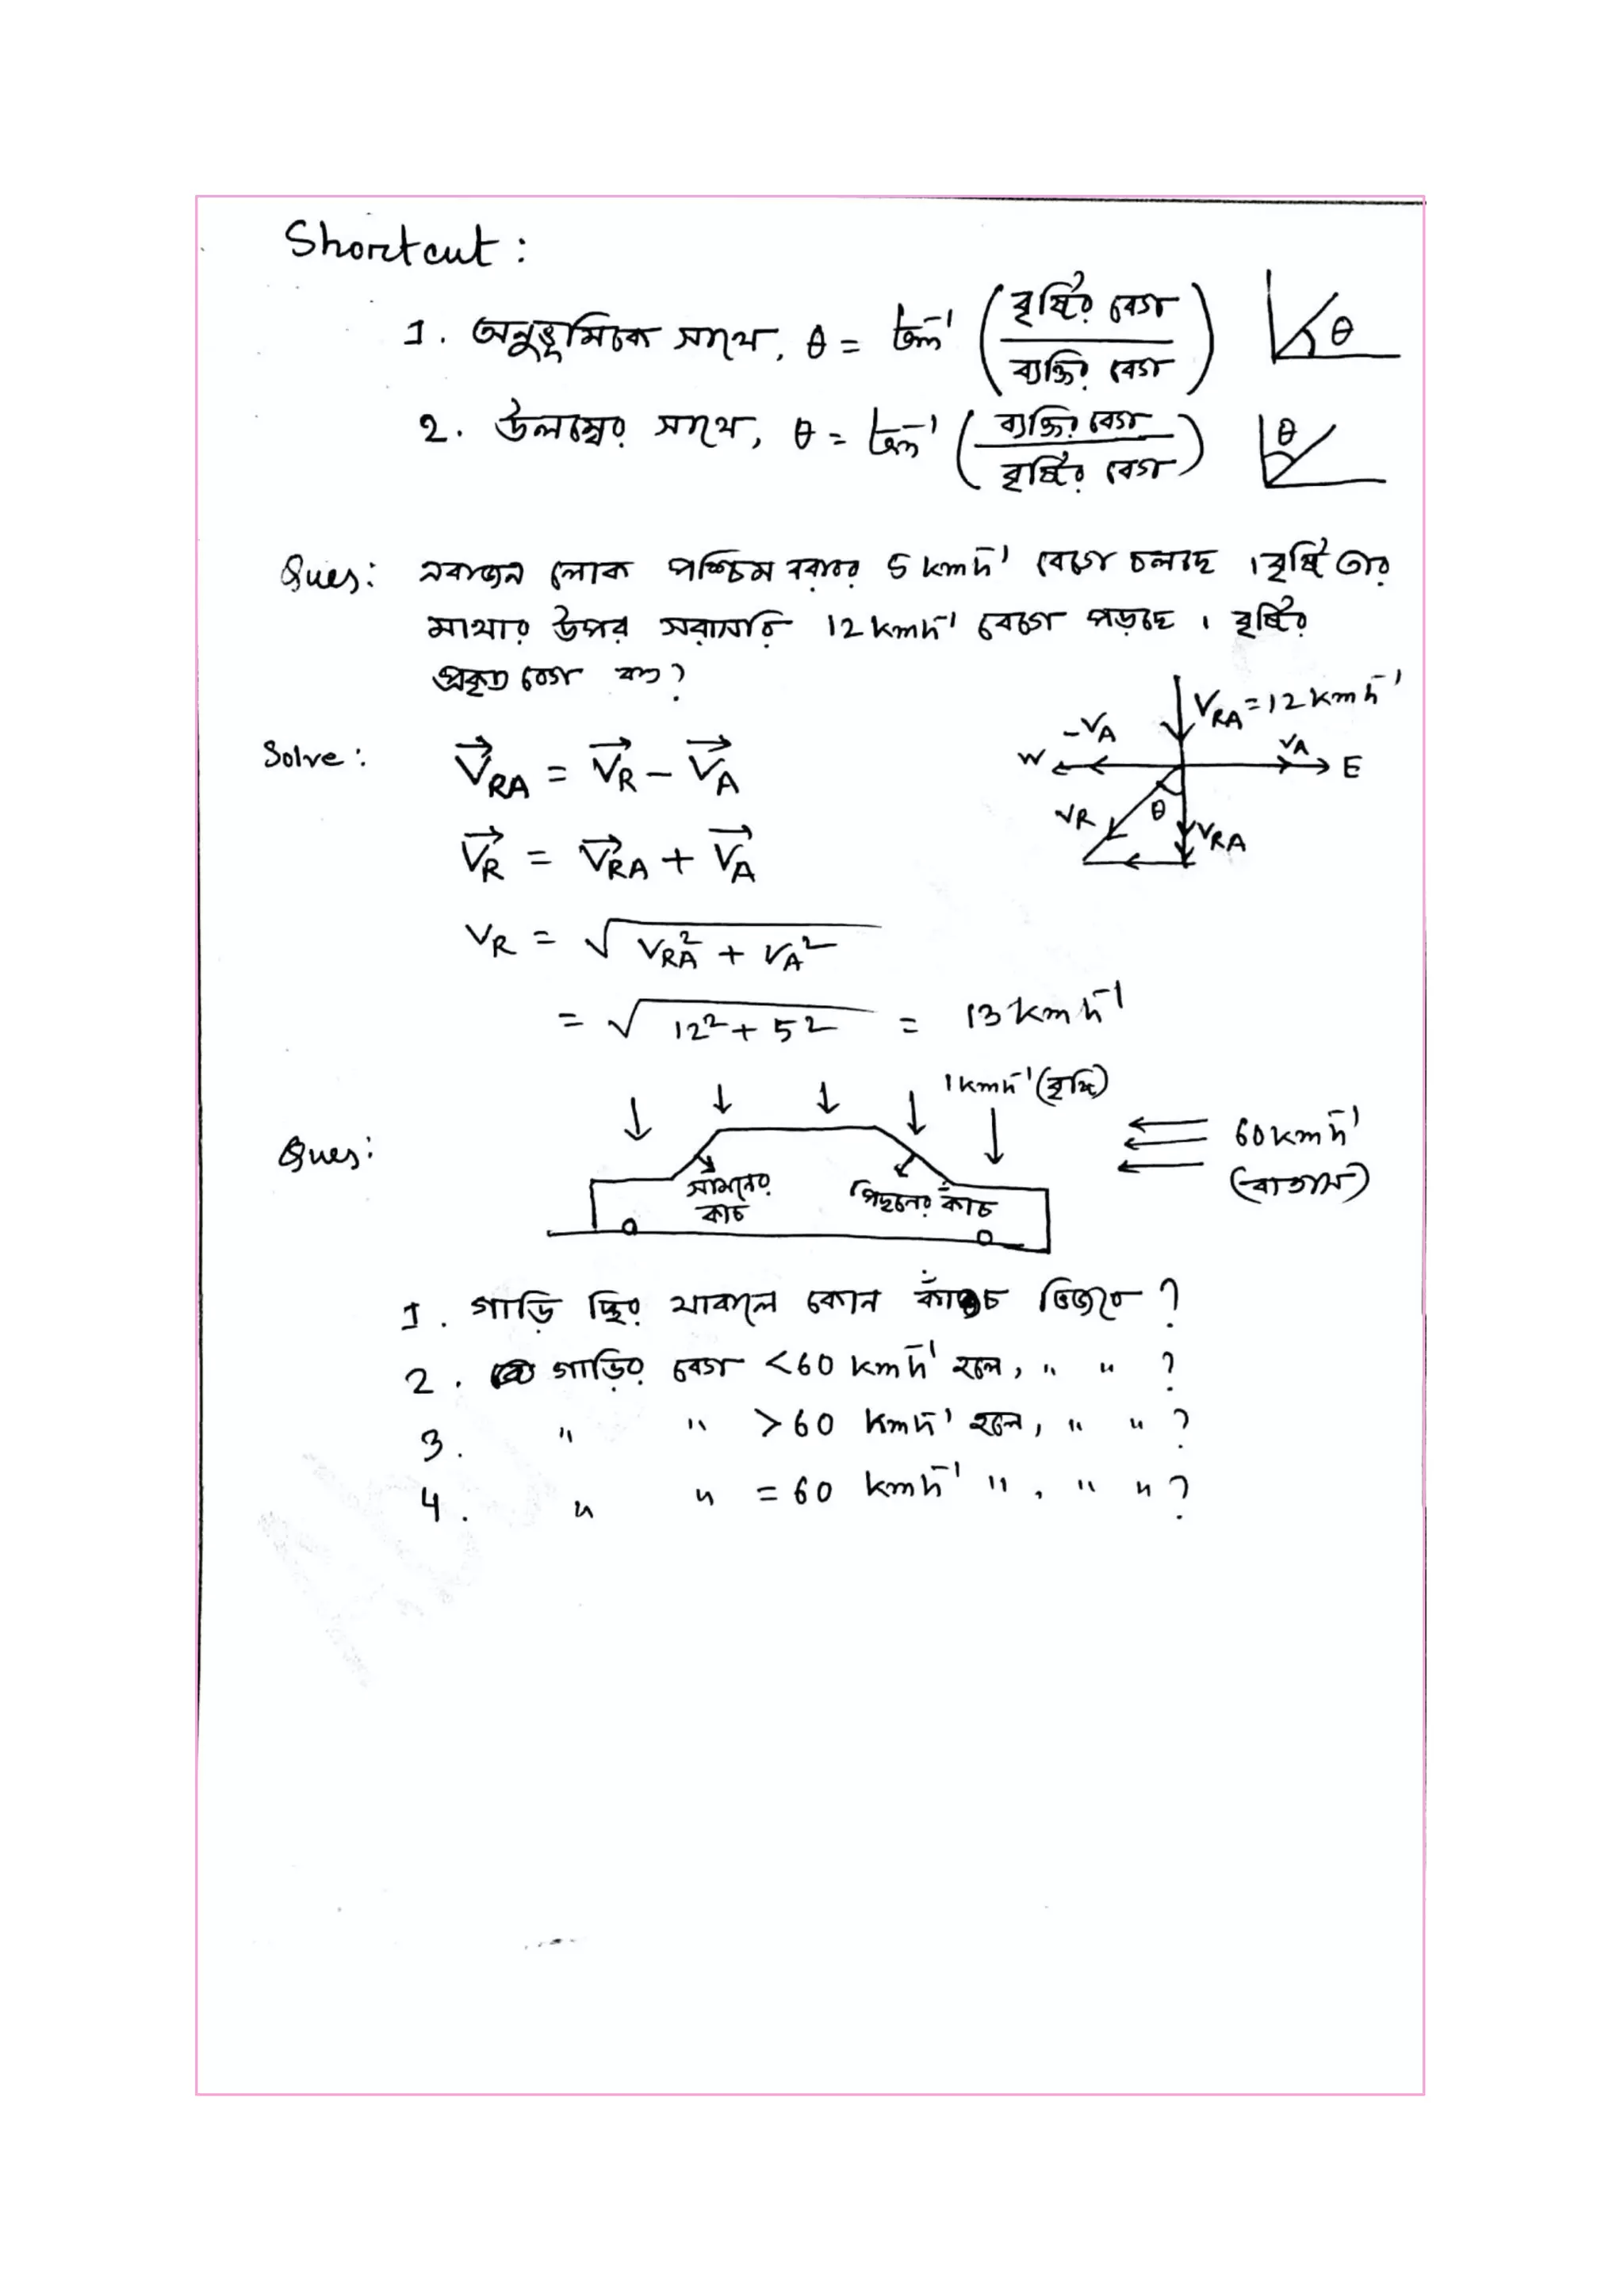 Shortcut :
1. অনুভূমিকের সাথে, θ = tan⁻¹ (বৃষ্টির বেগ / ব্যক্তির বেগ) θ
2. উলম্বের সাথে, θ = tan⁻¹ (ব্যক্তির বেগ / বৃষ্টির বেগ) θ
Ques: একজন লোক পশ্চিম বরাবর 5 kmh⁻¹ বেগে চলছে । বৃষ্টি তার
মাথার উপর সরাসরি 12 kmh⁻¹ বেগে পড়ছে । বৃষ্টির
প্রকৃত বেগ কত?
V_RA = 12 kmh⁻¹
-V_A V_A
W E
θ
V_R V_RA
Solve : V⃗_RA = V⃗_R − V⃗_A
V⃗_R = V⃗_RA + V⃗_A
V_R = √(V_RA² + V_A²)
= √(12² + 5²) = 13 kmh⁻¹
1 kmh⁻¹ (বৃষ্টি)
60 kmh⁻¹
(বাতাস)
Ques:
সামনের
কাচ
পিছনের কাঁচ
1. গাড়ি স্থির থাকলে কোন কাঁচ ভিজবে ?
2. গাড়ির বেগ <60 kmh⁻¹ হলে, " " ?
3. " " >60 kmh⁻¹ হলে, " " ?
4. " " = 60 kmh⁻¹ ", " " ?